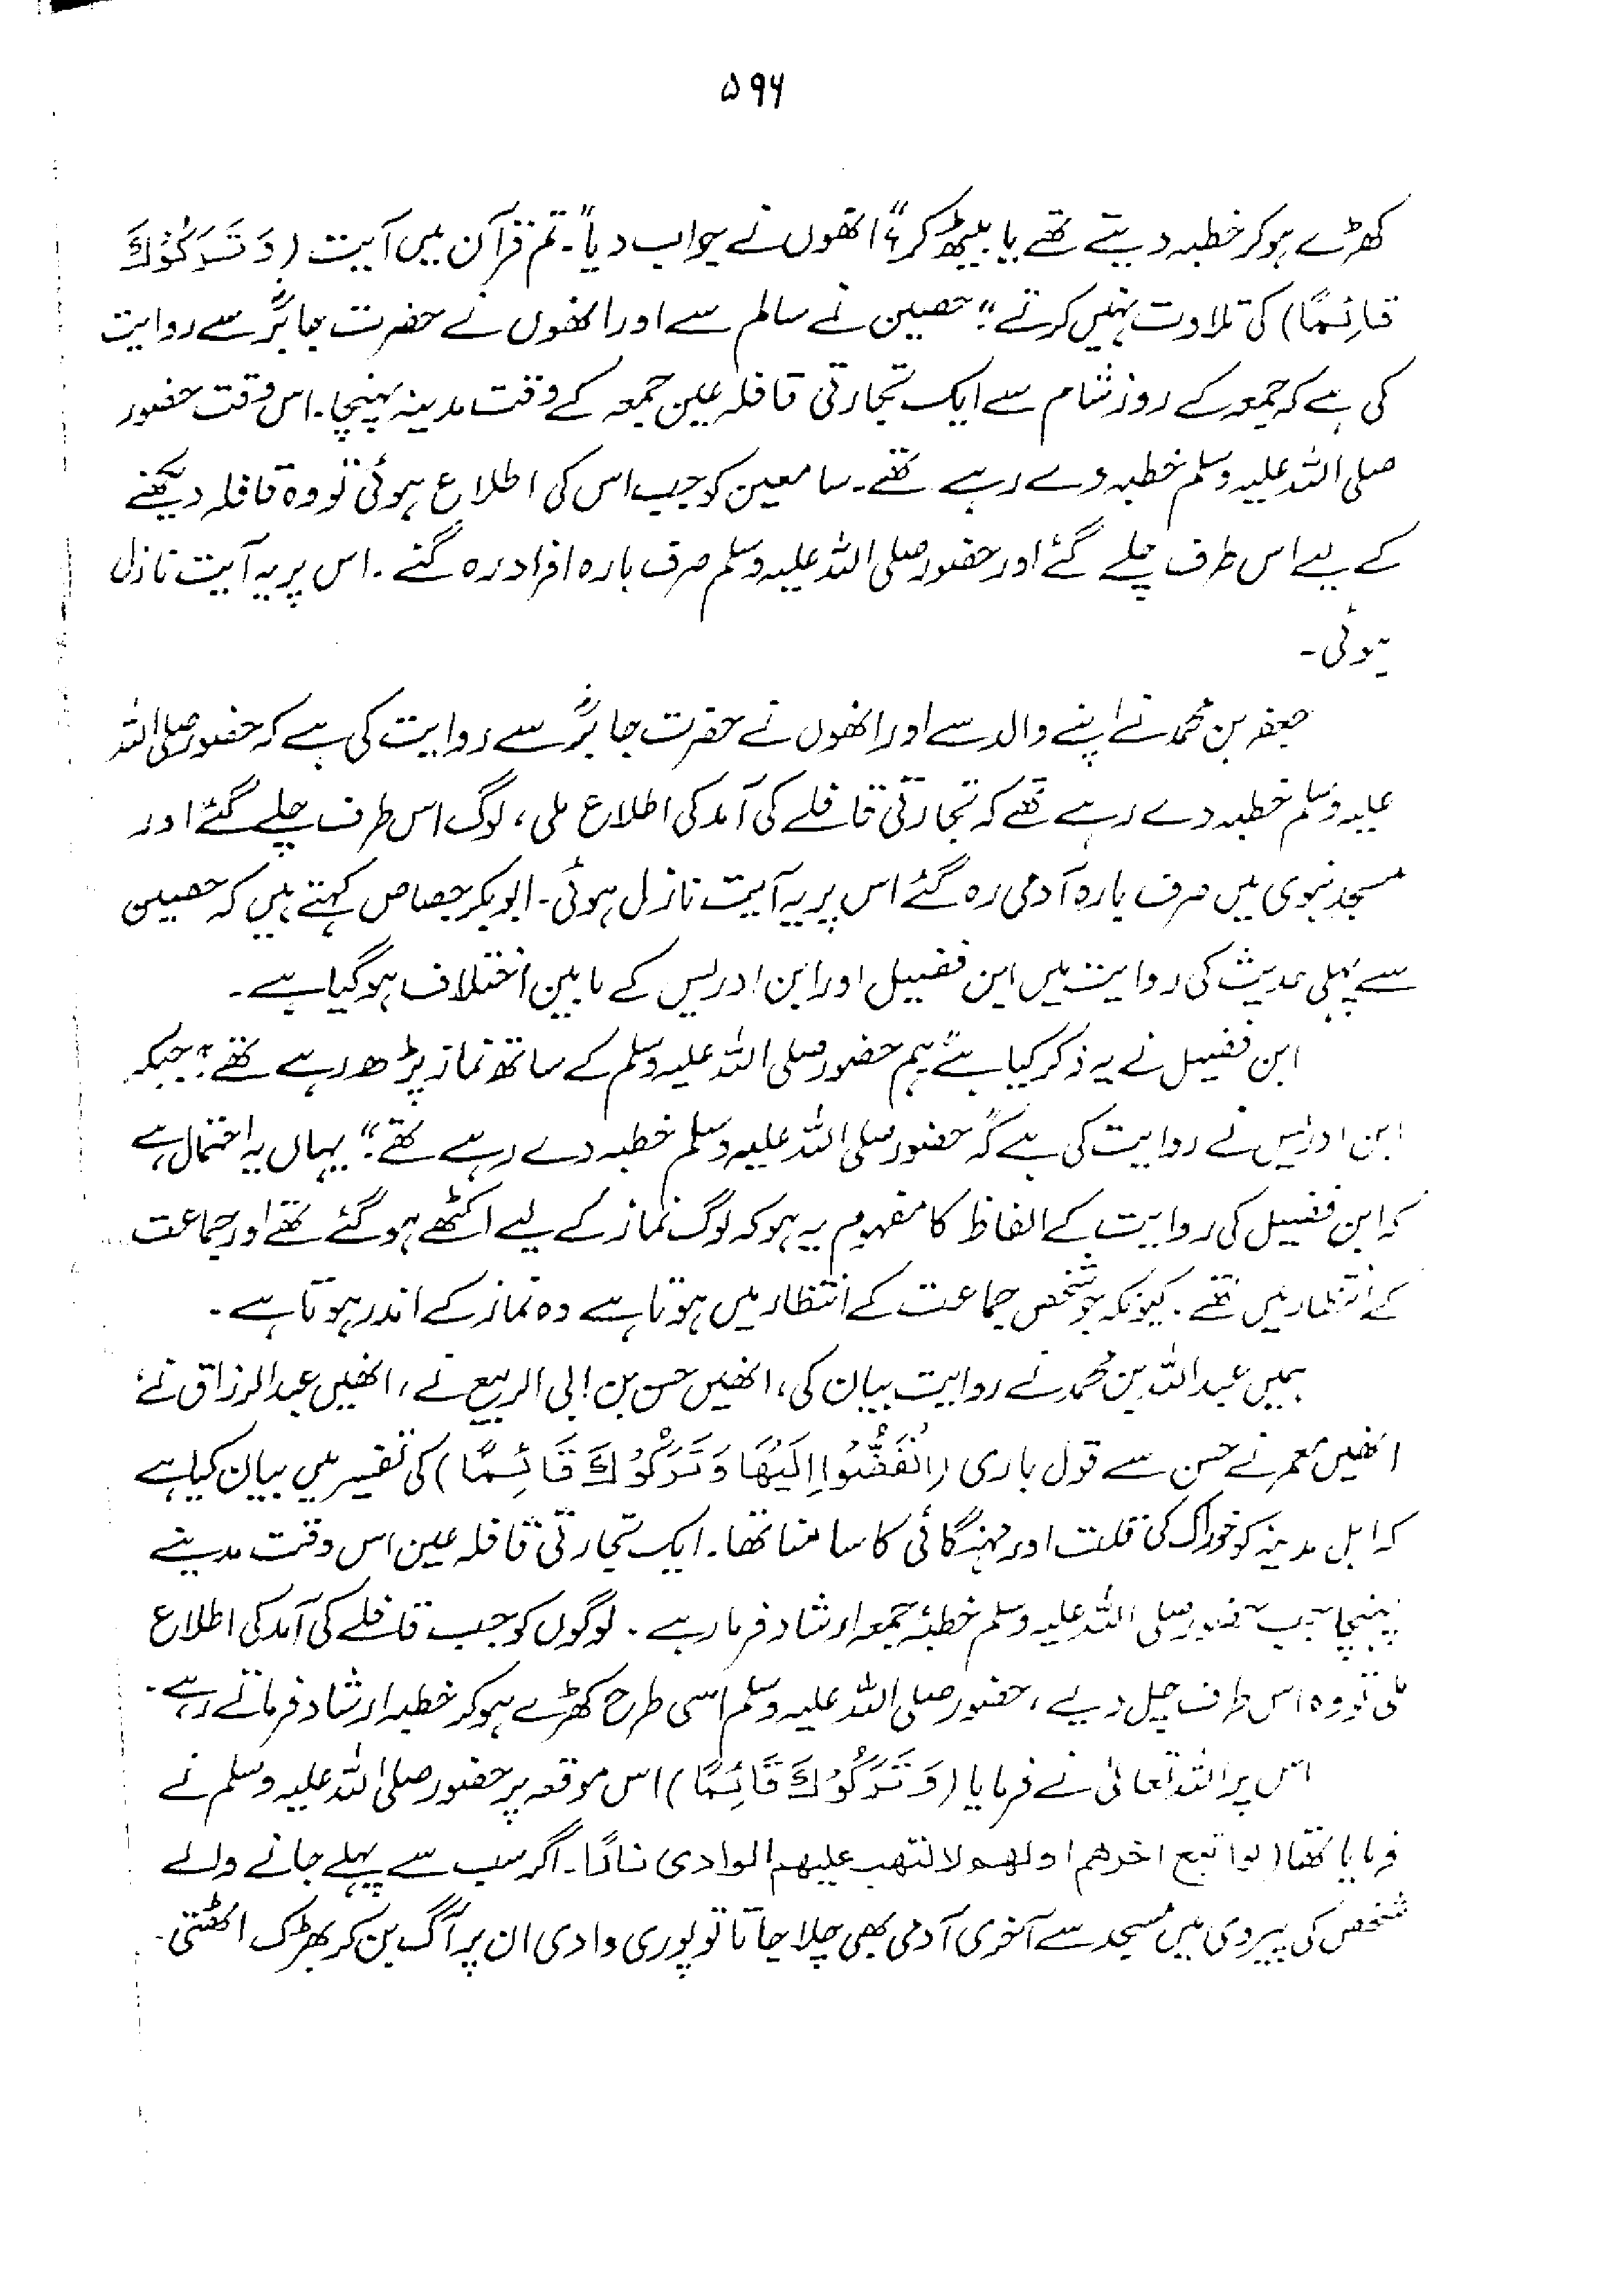 ۵۹۶
کھڑے ہوکر خطبہ دیتے تھے یا بیٹھ کر؟" انھوں نے جواب دیا"۔ تم قرآن میں آیت (وَتَرَكُوْكَ
قَائِمًا) کی تلاوت نہیں کرتے"؛ حصین نے سالم سے اور انھوں نے حضرت جابرؓ سے روایت
کی ہے کہ جمعہ کے روز شام سے ایک تجارتی قافلہ عین جمعہ کے وقت مدینہ پہنچا۔ اس وقت حضور
صلی اللہ علیہ وسلم خطبہ دے رہے تھے۔ سامعین کو جب اس کی اطلاع ہوئی تو وہ قافلہ دیکھنے
کے لیے اس طرف چلے گئے اور حضور صلی اللہ علیہ وسلم صرف بارہ افراد رہ گئے۔ اس پر یہ آیت نازل
ہوئی۔
جعفر بن محمد نے اپنے والد سے اور انھوں نے حضرت جابرؓ سے روایت کی ہے کہ حضور صلی اللہ
علیہ وسلم خطبہ دے رہے تھے کہ تجارتی قافلے کی آمد کی اطلاع ملی، لوگ اس طرف چلے گئے اور
مسجد نبوی میں صرف بارہ آدمی رہ گئے اس پر یہ آیت نازل ہوئی۔ ابوبکر جصاص کہتے ہیں کہ حصین
سے پہلی حدیث کی روایت میں ابن فضیل اور ابن ادریس کے مابین اختلاف ہوگیا ہے۔
ابن فضیل نے یہ ذکر کیا ہے "ہم حضور صلی اللہ علیہ وسلم کے ساتھ نماز پڑھ رہے تھے"؛ جبکہ
ابن ادریس نے روایت کی ہے کہ "حضور صلی اللہ علیہ وسلم خطبہ دے رہے تھے"؛ یہاں یہ احتمال ہے
کہ ابن فضیل کی روایت کے الفاظ کا مفہوم یہ ہو کہ لوگ نماز کے لیے اکٹھے ہوگئے تھے اور جماعت
کے انتظار میں تھے۔ کیونکہ جو شخص جماعت کے انتظار میں ہوتا ہے وہ نماز کے اندر ہوتا ہے۔
ہمیں عبداللہ بن محمد نے روایت بیان کی، انھیں حسن بن ابی الربیع نے، انھیں عبدالرزاق نے
انھیں معمر نے حسن سے قول باری (اِنْفَضُّوْا اِلَيْهَا وَتَرَكُوْكَ قَائِمًا) کی تفسیر میں بیان کیا ہے
کہ اہل مدینہ کو خوراک کی قلت اور مہنگائی کا سامنا تھا۔ ایک تجارتی قافلہ عین اس وقت مدینے
پہنچا جب حضور صلی اللہ علیہ وسلم خطبۂ جمعہ ارشاد فرما رہے۔ لوگوں کو جب قافلے کی آمد کی اطلاع
ملی تو وہ اس طرف چل دیے، حضور صلی اللہ علیہ وسلم اسی طرح کھڑے ہوکر خطبہ ارشاد فرماتے رہے۔
اس پر اللہ تعالیٰ نے فرمایا (وَتَرَكُوْكَ قَائِمًا) اس موقعہ پر حضور صلی اللہ علیہ وسلم نے
فرمایا تھا (لو اتبع اخرهم اولهم لالتهب عليهم الوادى نارًا۔ اگر سب سے پہلے جانے والے
شخص کی پیروی میں مسجد سے آخری آدمی بھی چلا جاتا تو پوری وادی ان پر آگ بن کر بھڑک اٹھتی۔